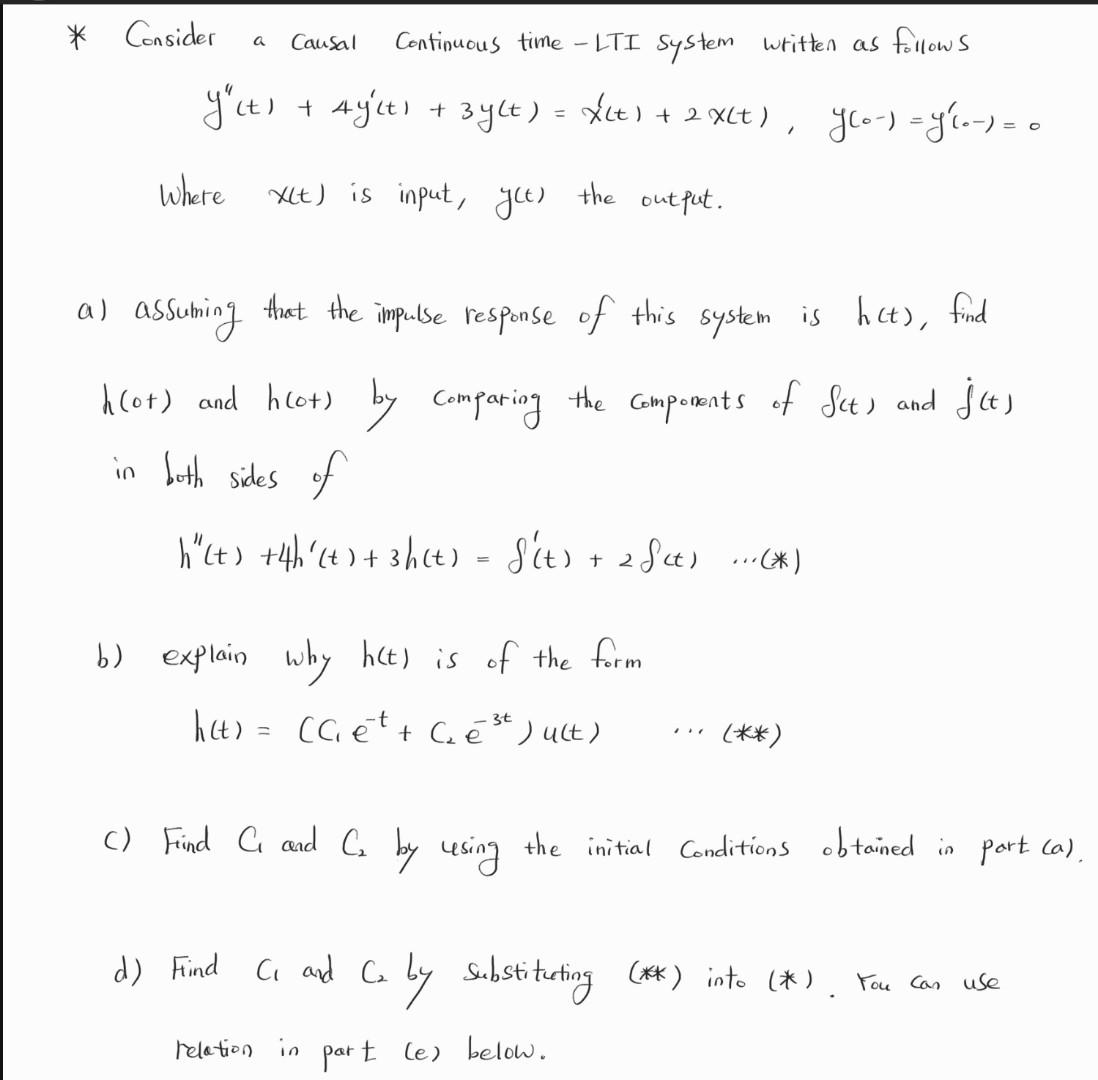 * Consider a causal Continuous time - LTI system written as follows
y"(t) + 4y'(t) + 3y(t) = x'(t) + 2x(t), y(0-) = y'(0-) = 0
Where x(t) is input, y(t) the output.
a) assuming that the impulse response of this system is h(t), find
h(0+) and h(0+) by comparing the components of δ(t) and δ̇(t)
in both sides of
h"(t) + 4h'(t) + 3h(t) = δ'(t) + 2δ(t) ...(*)
b) explain why h(t) is of the form
h(t) = (C₁e^-t + C₂e^-3t) u(t) ... (**)
c) Find C₁ and C₂ by using the initial conditions obtained in part (a).
d) Find C₁ and C₂ by substituting (**) into (*). You can use
relation in part (e) below.